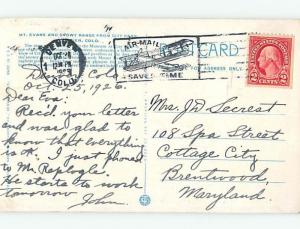 MT. EVANS AND SNOWY RANGE FROM CITY PARK,
DENVER, COLO.
POSTCARD
DENVER
COLO.
AIR MAIL
SAVES TIME
2 CENTS 2
Denver, Colo.
Oct. 25, 1926.
Dear Eva:
Recd. your letter
and was glad to
know that everything
is OK. I just phoned
to Mr. Replogle.
He starts to work
tomorrow
John
Mrs. J W Secrest
108 Spa Street
Cottage City
Brentwood,
Maryland